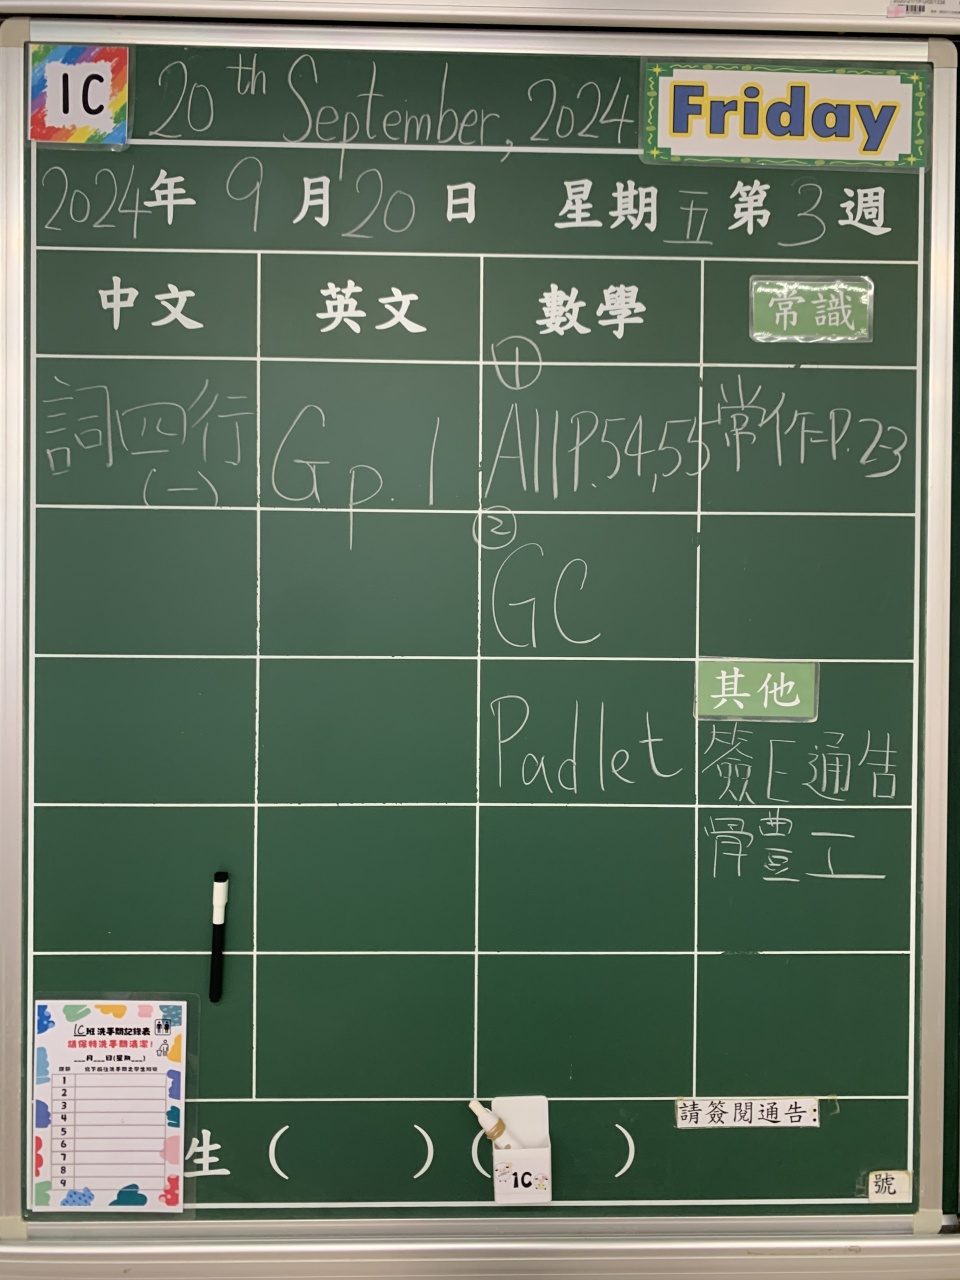 1C
20th September, 2024
Friday
2024年 9月20日 星期五第3週
中文 英文 數學 常識
詞四行(一)
Gp.1
① A11P.54,55
常作P.2-3
② GC
Padlet
其他
簽E通告
體工
1C班洗手間記錄表
請保持洗手間清潔!
___月___日(星期___)
1
2
3
4
5
6
7
8
9
生 ( ) ( )
1C
請簽閱通告:
號